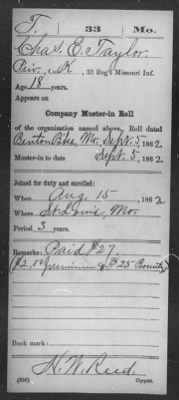 T. 33 Mo.
Chas. E. Taylor
Priv., Co. K, 33 Reg't Missouri Inf.
Age 18 years.
Appears on
Company Muster-in Roll
of the organization named above. Roll dated
Benton Bks, Mo. Sept. 5, 1862.
Muster-in to date Sept. 5, 1862.
Joined for duty and enrolled:
When Aug. 15, 1862.
Where St. Louis, Mo.
Period 3 years.
Remarks: Paid $27
($2.00 premium & $25 Bounty)
Book mark:
H. W. Reed
(356) Copyist.